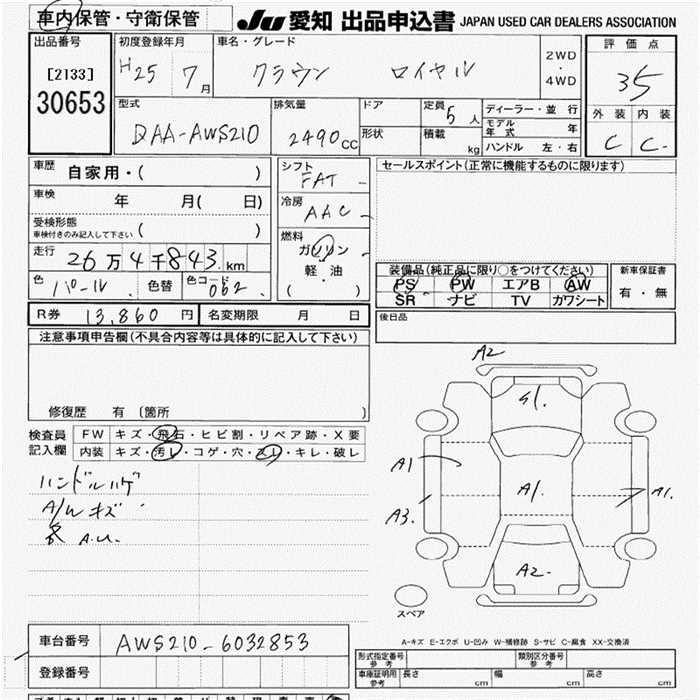 車内保管・守衛保管
JU 愛知 出品申込書 JAPAN USED CAR DEALERS ASSOCIATION
出品番号
[2133]
30653
初度登録年月
H25 7月
車名・グレード
クラウン ロイヤル
2WD
・
4WD
評価点
3.5
外装 内装
C C
型式
DAA-AWS210
排気量
2490cc
ドア
形状
定員
5人
積載
kg
ディーラー・並行
モデル年式 年
ハンドル 左・右
車歴 自家用・( )
車検 年 月( 日)
受検形態
車検付きのみ記入して下さい ( )
走行 26万4千843km
色 パール 色替 色コード 062
シフト
FAT
冷房
AAC
燃料
ガソリン
・
軽油
( )
セールスポイント(正常に機能するものに限ります)
装備品(純正品に限り○をつけてください)
PS PW エアB AW
SR ナビ TV カワシート
新車保証書
有・無
後日品
R券 13,860円 名変期限 月 日
注意事項申告欄(不具合内容等は具体的に記入して下さい)
修復歴 有 (箇所 )
検査員記入欄
FW キズ・飛石・ヒビ割・リペア跡・X要
内装 キズ・汚レ・コゲ・穴・スレ・キレ・破レ
ハンドルハゲ
A/Wキズ
各A.U.
A2
S1.
A1
A3.
A1.
A1.
A2-
スペア
A-キズ E-エクボ U-凹み W-補修跡 S-サビ C-腐食 XX-交換済
車台番号 AWS210-6032853
登録番号
形式指定番号
参考
類別区分番号
参考
車庫証明用
参考
長さ cm 幅 cm 高さ cm